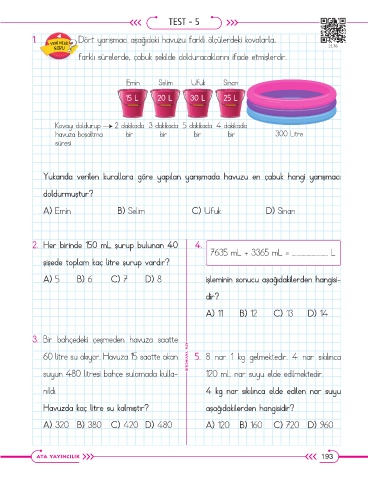 TEST - 5
1. Dört yarışmacı aşağıdaki havuzu farklı ölçülerdeki kovalarla,
farklı sürelerde, çabuk şekilde dolduracaklarını ifade etmişlerdir.
Emin Selim Ufuk Sinan
15 L 20 L 30 L 25 L
Kovayı doldurup → 2 dakikada 3 dakikada 5 dakikada 4 dakikada
havuza boşaltma bir bir bir bir 300 Litre
süresi
Yukarıda verilen kurallara göre yapılan yarışmada havuzu en çabuk hangi yarışmacı
doldurmuştur?
A) Emin B) Selim C) Ufuk D) Sinan
2. Her birinde 150 mL şurup bulunan 40
şişede toplam kaç litre şurup vardır?
A) 5 B) 6 C) 7 D) 8
3. Bir bahçedeki çeşmeden havuza saatte
60 litre su akıyor. Havuza 15 saatte akan
suyun 480 litresi bahçe sulamada kulla-
nıldı.
Havuzda kaç litre su kalmıştır?
A) 320 B) 380 C) 420 D) 480
4.
7635 mL + 3365 mL = ________ L
işleminin sonucu aşağıdakilerden hangisi-
dir?
A) 11 B) 12 C) 13 D) 14
5. 8 nar 1 kg gelmektedir. 4 nar sıkılınca
120 mL nar suyu elde edilmektedir.
4 kg nar sıkılınca elde edilen nar suyu
aşağıdakilerden hangisidir?
A) 120 B) 160 C) 720 D) 960
ATA YAYINCILIK
193